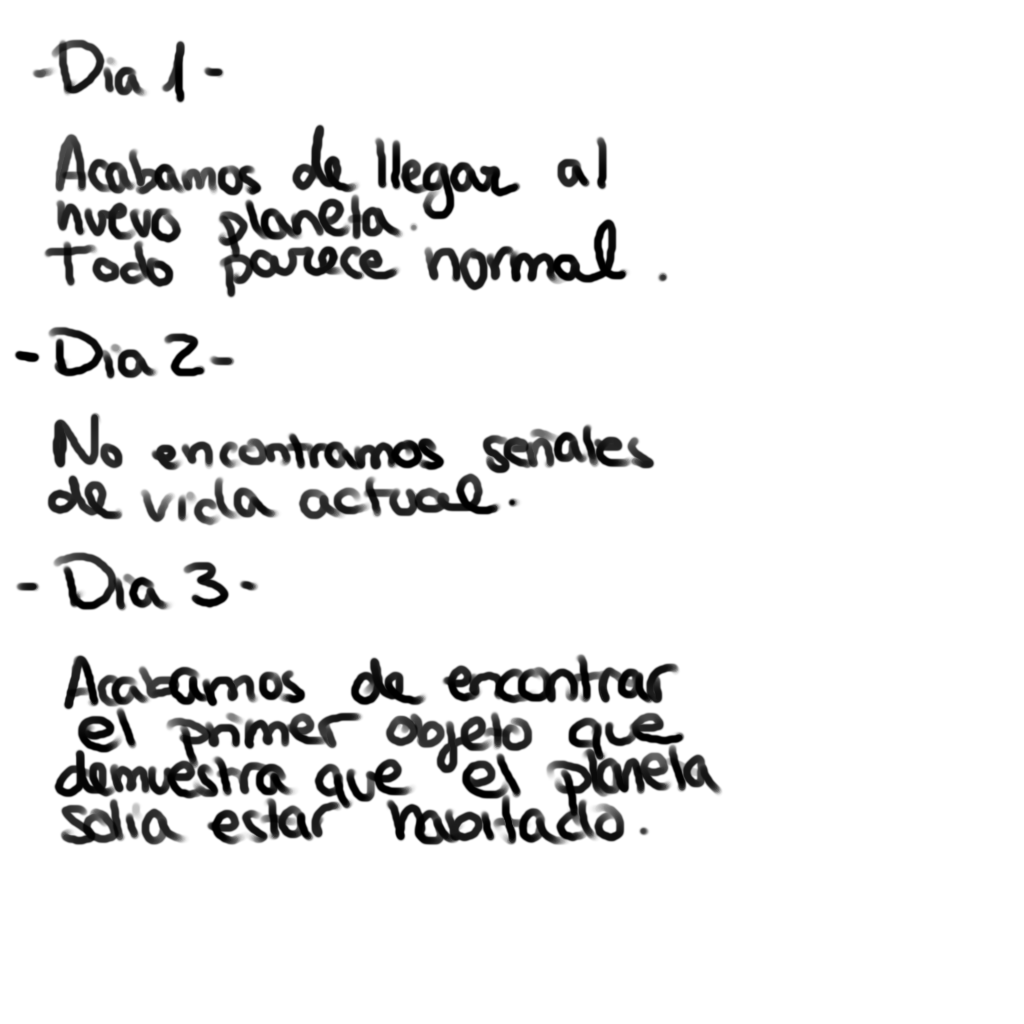 -Dia 1-
Acabamos de llegar al
nuevo planeta.
Todo parece normal.
-Dia 2-
No encontramos señales
de vida actual.
-Dia 3-
Acabamos de encontrar
el primer objeto que
demuestra que el planeta
solia estar habitado.